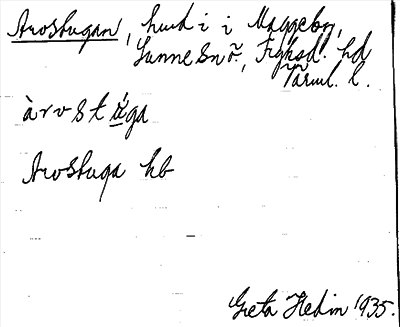 Arvstugan, hmd i i Maggebn,
Sunne Sn o., Fryksd. hd
Värml. l.
àrvstúga
Arvstuga hb
Greta Hedin 1935.